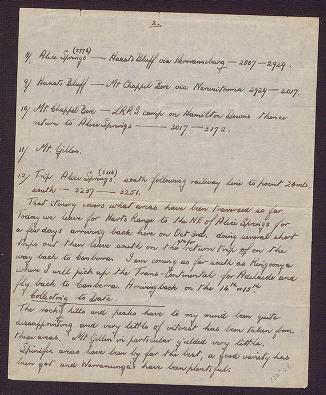 2.
(2776)
8) Alice Springs — Haasts Bluff via Hermannsburg — 2807 – 2929.
9) Haasts Bluff — Mt Chappel Bore — via Narwietooma 2929 – 3017.
10) Mt. Chappel Bore — L.R.R.S. camp on Hamilton Downs thence
return to Alice Springs — 3017 – 3172.
11) Mt. Gillen.
(3216)
12) Trip Alice Springs, south following railway line to point 2 mls.
south — 3237 – 3251.
That itinery covers what areas have been traversed so far.
Today we leave for Harts Range to the NE of Alice Springs for
a few days arriving back here on Oct 3rd, doing several short
trips out then leave south on the return trip on the
way back to Canberra. I am coming as far south as Kingoonya
where I will pick up the Trans-Continental for Adelaide and
fly back to Canberra. Arriving back on the 14th or 15th
Collecting to date.
The rocky hills and peaks have to my mind been quite
disappointing and very little of interest has been taken from
these areas. Mt Gillen in particular yielded very little.
Spinifex areas have been by far the best, a good variety has
been got and Warramungas have been plentiful.